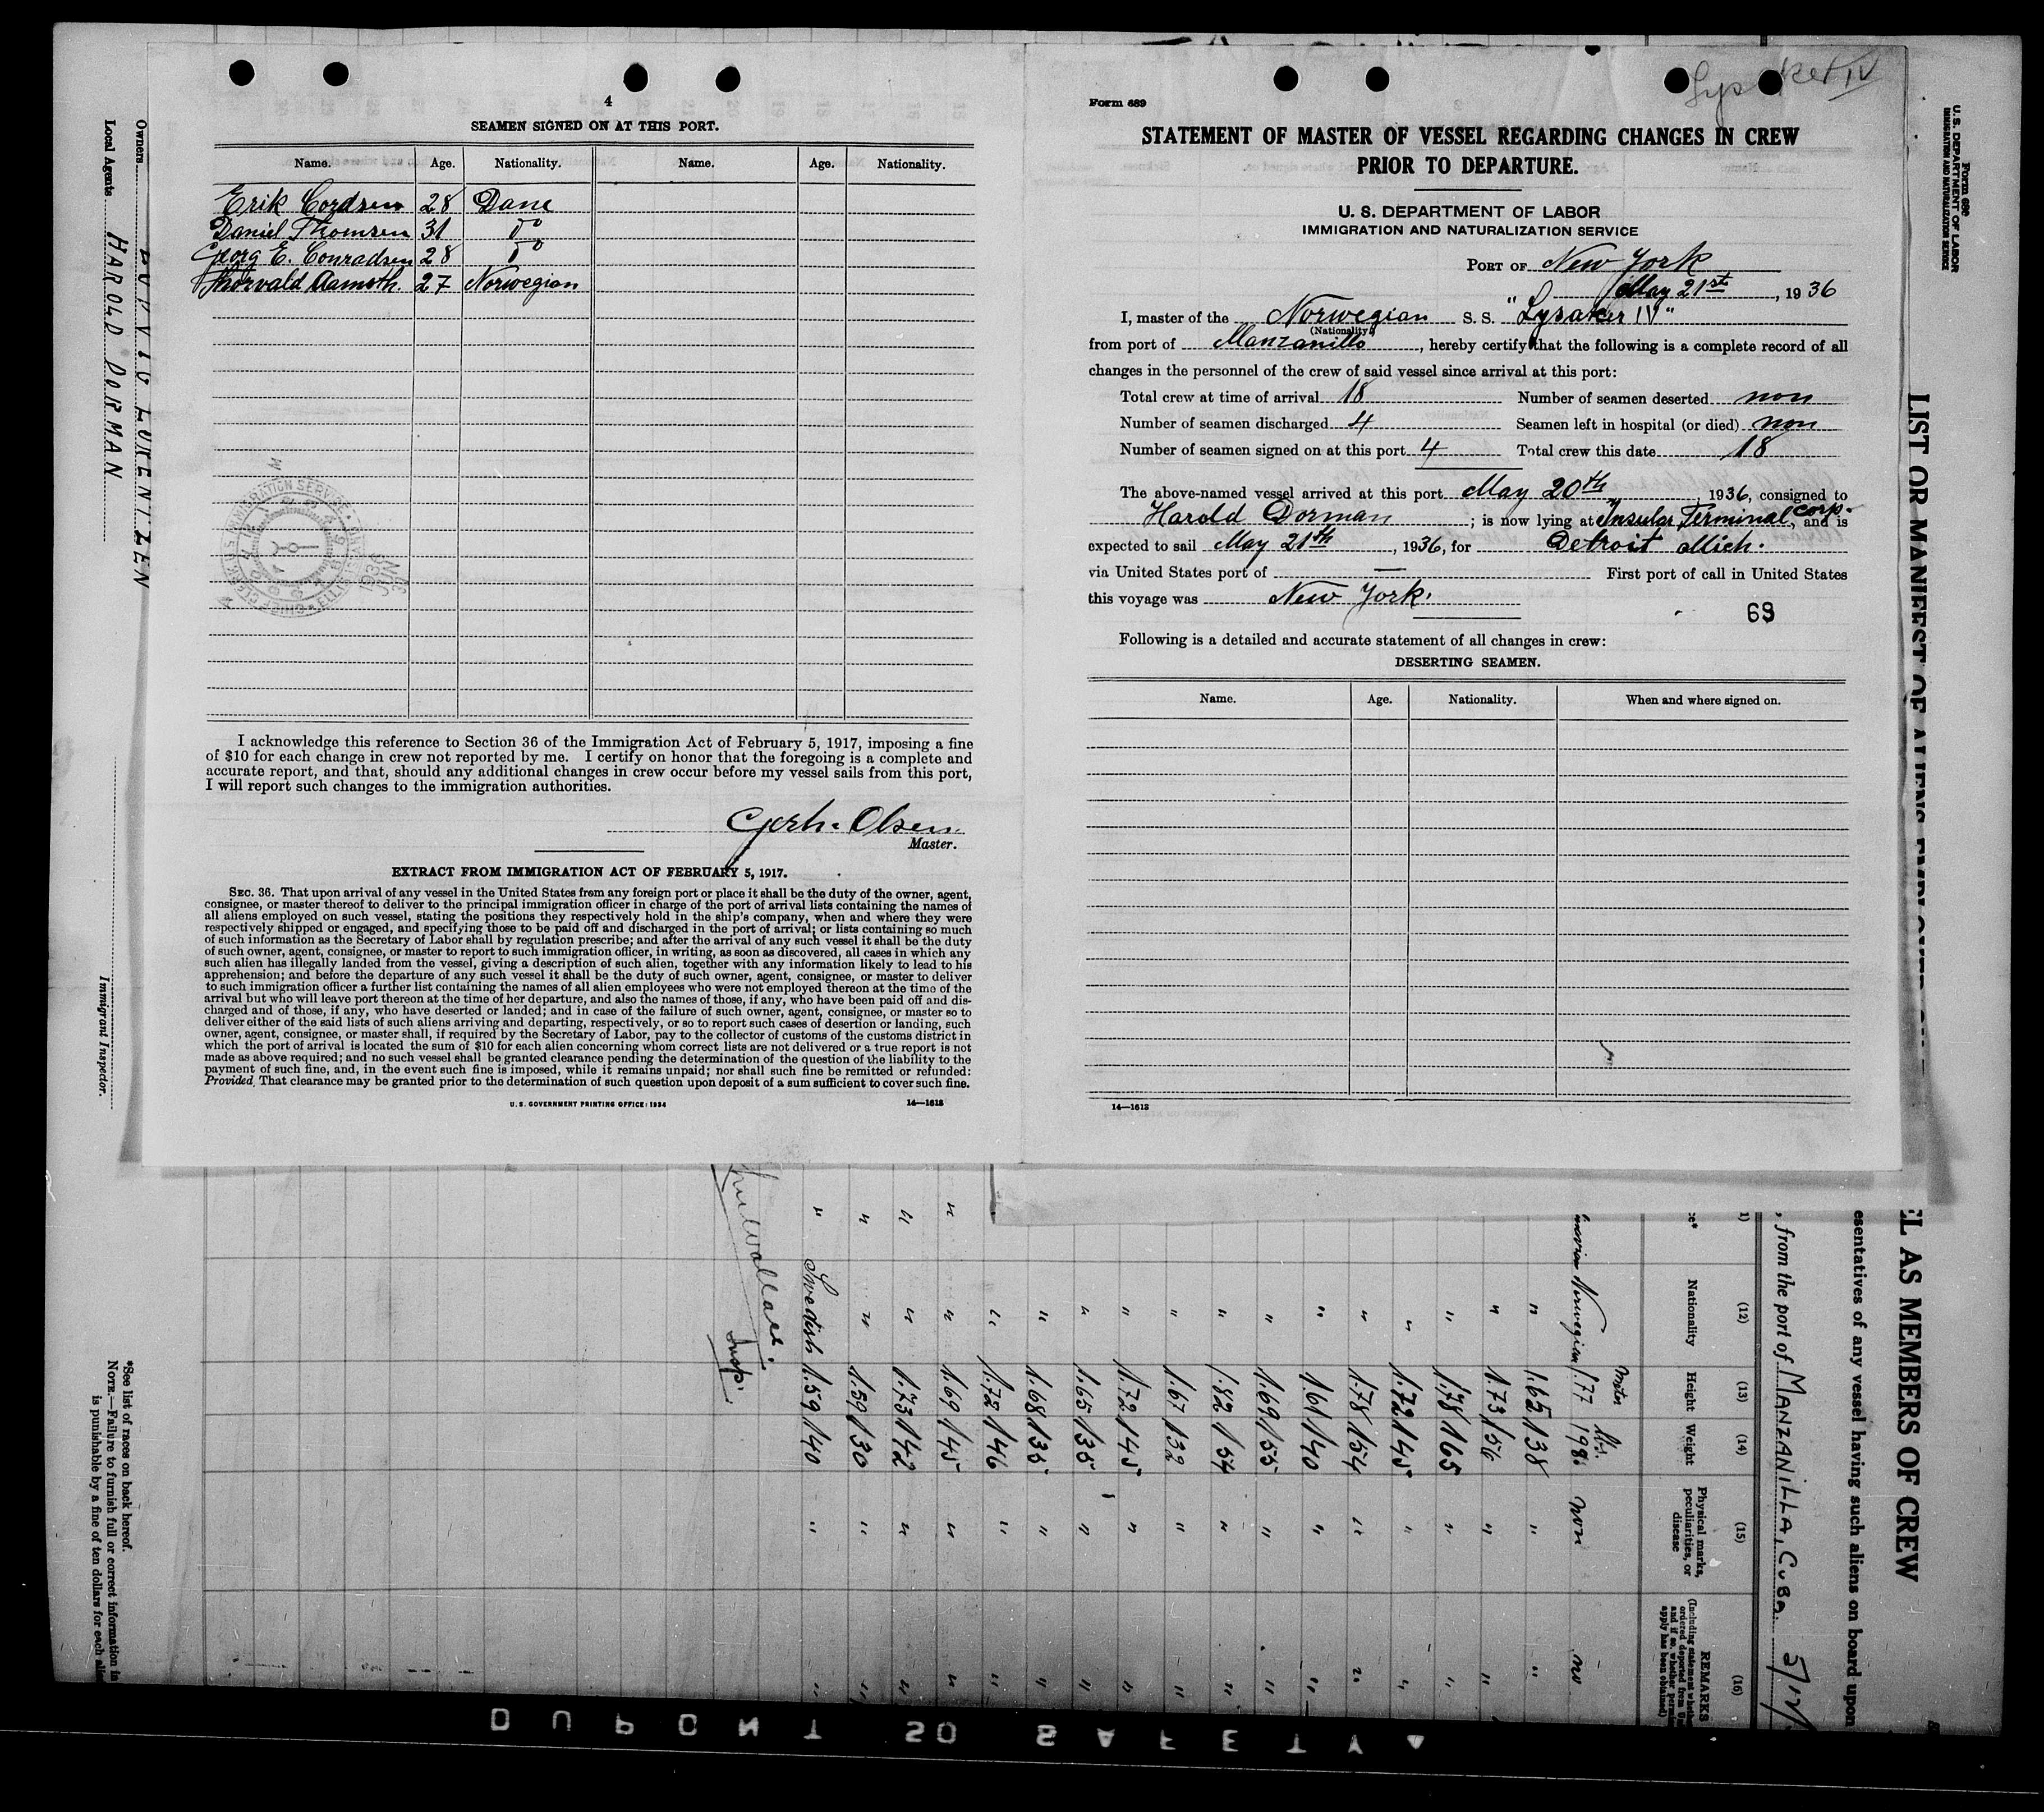 4
SEAMEN SIGNED ON AT THIS PORT.
Name. Age. Nationality. Name. Age. Nationality.
Erik Cordsen 28 Dane
Daniel Thomsen 31 Do
Georg E. Conradsen 28 Do
Thorvald Aamoth. 27 Norwegian
I acknowledge this reference to Section 36 of the Immigration Act of February 5, 1917, imposing a fine
of $10 for each change in crew not reported by me. I certify on honor that the foregoing is a complete and
accurate report, and that, should any additional changes in crew occur before my vessel sails from this port,
I will report such changes to the immigration authorities.
Gerh. Olsen
Master.
EXTRACT FROM IMMIGRATION ACT OF FEBRUARY 5, 1917.
SEC. 36. That upon arrival of any vessel in the United States from any foreign port or place it shall be the duty of the owner, agent,
consignee, or master thereof to deliver to the principal immigration officer in charge of the port of arrival lists containing the names of
all aliens employed on such vessel, stating the positions they respectively hold in the ship's company, when and where they were
respectively shipped or engaged, and specifying those to be paid off and discharged in the port of arrival; or lists containing so much
of such information as the Secretary of Labor shall by regulation prescribe; and after the arrival of any such vessel it shall be the duty
of such owner, agent, consignee, or master to report to such immigration officer, in writing, as soon as discovered, all cases in which any
such alien has illegally landed from the vessel, giving a description of such alien, together with any information likely to lead to his
apprehension; and before the departure of any such vessel it shall be the duty of such owner, agent, consignee, or master to deliver
to such immigration officer a further list containing the names of all alien employees who were not employed thereon at the time of the
arrival but who will leave port thereon at the time of her departure, and also the names of those, if any, who have been paid off and dis-
charged and of those, if any, who have deserted or landed; and in case of the failure of such owner, agent, consignee, or master so to
deliver either of the said lists of such aliens arriving and departing, respectively, or so to report such cases of desertion or landing, such
owner, agent, consignee, or master shall, if required by the Secretary of Labor, pay to the collector of customs of the customs district in
which the port of arrival is located the sum of $10 for each alien concerning whom correct lists are not delivered or a true report is not
made as above required; and no such vessel shall be granted clearance pending the determination of the question of the liability to the
payment of such fine, and, in the event such fine is imposed, while it remains unpaid; nor shall such fine be remitted or refunded:
Provided, That clearance may be granted prior to the determination of such question upon deposit of a sum sufficient to cover such fine.
U. S. GOVERNMENT PRINTING OFFICE: 1934 14—1613
Lysaker IV
Form 689
STATEMENT OF MASTER OF VESSEL REGARDING CHANGES IN CREW
PRIOR TO DEPARTURE.
U. S. DEPARTMENT OF LABOR
IMMIGRATION AND NATURALIZATION SERVICE
PORT OF New York
May 21st, 1936
I, master of the Norwegian S. S. "Lysaker IV"
(Nationality)
from port of Manzanillo, hereby certify that the following is a complete record of all
changes in the personnel of the crew of said vessel since arrival at this port:
Total crew at time of arrival 18 Number of seamen deserted non
Number of seamen discharged 4 Seamen left in hospital (or died) non
Number of seamen signed on at this port 4 Total crew this date 18
The above-named vessel arrived at this port May 20th, 1936, consigned to
Harold Dorman; is now lying at Insular Terminal Corp., and is
expected to sail May 21th, 1936, for Detroit Mich.
via United States port of — First port of call in United States
this voyage was New York.
69
Following is a detailed and accurate statement of all changes in crew:
DESERTING SEAMEN.
Name. Age. Nationality. When and where signed on.
14—1613
Owners
Local Agents HAROLD DORMAN
Immigrant Inspector.
Form 689
U. S. DEPARTMENT OF LABOR
IMMIGRATION AND NATURALIZATION SERVICE
LIST OR MANIFEST OF ALIENS
EL AS MEMBERS OF CREW
esentatives of any vessel having such aliens on board upon
, from the port of MANZANILLA, CUBA
(12) (13) (14) (15) (16)
Nationality Height Weight Physical marks, peculiarities, or disease REMARKS
Meter lbs.
Norwegian 1.77 198 non no
" 1.65 138 " "
" 1.73 156 " "
" 1.78 165 " "
" 1.72 145 " "
" 1.78 154 " "
" 1.61 140 " "
" 1.69 155 " "
" 1.82 154 " "
" 1.67 132 " "
" 1.72 145 " "
" 1.65 135 " "
" 1.68 135 " "
" 1.72 146 " "
" 1.69 145 " "
" 1.73 142 " "
" 1.59 130 " "
Swedish 1.59 140 " "
Insp.
*See list of races on back hereof.
NOTE.—Failure to furnish full or correct information is
is punishable by a fine of ten dollars for each alien
DUPONT SO SAFETY